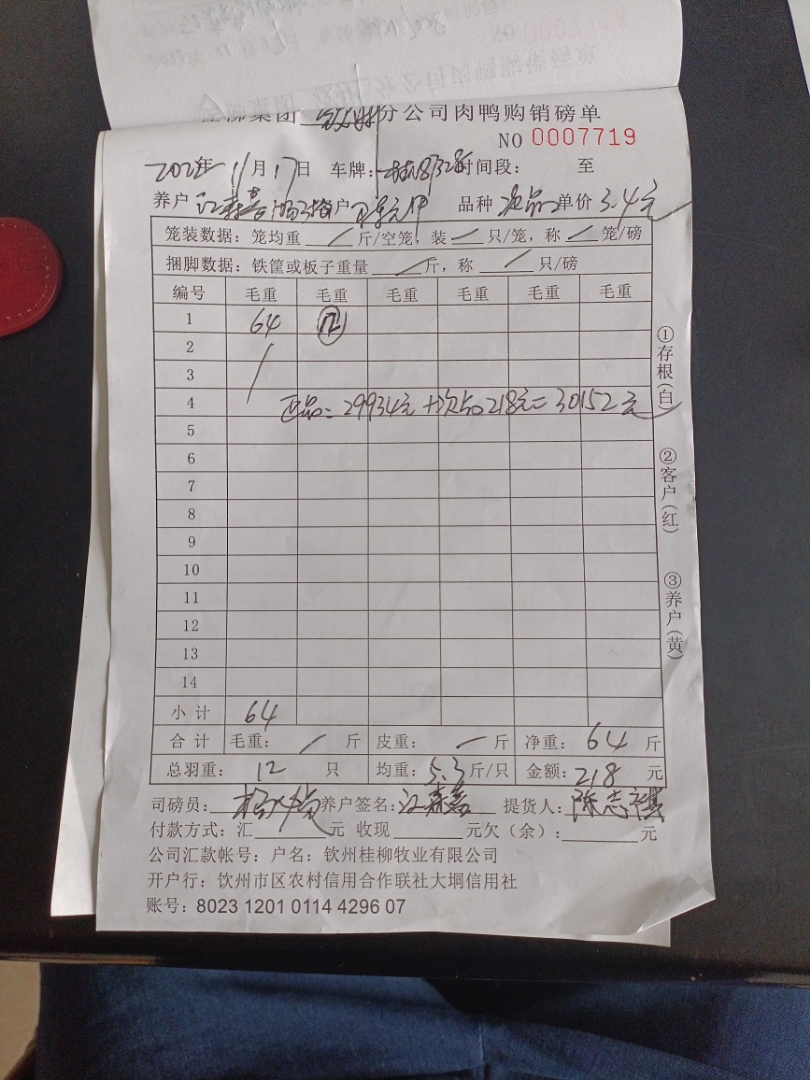 桂柳集团 钦州分公司肉鸭购销磅单
NO 0007719
11月17日 车牌: 时间段: 至
养户 江森善 客户 品种 次品 单价 3.4元
笼装数据：笼均重 / 斤/空笼，装 / 只/笼，称 / 笼/磅
捆脚数据：铁筐或板子重量 / 斤，称 / 只/磅
编号 毛重 毛重 毛重 毛重 毛重 毛重
1 64 12
2
3
4 正品=29934元+次品218元=30152元
5
6
7
8
9
10
11
12
13
14
小计 64
合计 毛重： / 斤 皮重： / 斤 净重： 64 斤
总羽重： 12 只 均重：5.3斤/只 金额：218 元
司磅员： 养户签名： 江森善 提货人：陈志祺
付款方式：汇 元 收现 元欠（余）： 元
公司汇款帐号：户名：钦州桂柳牧业有限公司
开户行：钦州市区农村信用合作联社大垌信用社
账号：8023 1201 0114 4296 07
①存根（白）
②客户（红）
③养户（黄）